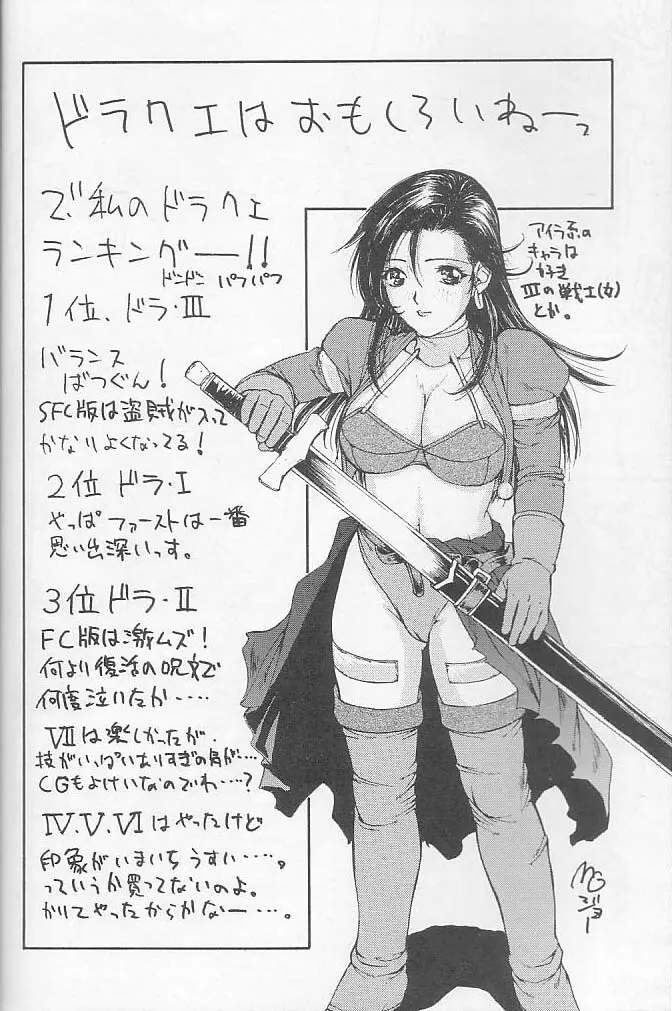 ドラクエはおもしろいねーっ
で、私のドラクエ
ランキングー!!
ドンドン パフパフ
1位、ドラ・III
バランス
ばつぐん!
SFC版は盗賊が入って
かなりよくなってる!
2位 ドラ・I
やっぱファーストは一番
思い出深いっす。
3位 ドラ・II
FC版は激ムズ!
何より復活の呪文で
何度泣いたか‥‥
VIIは楽しかったが、
技がいっぱいありすぎの気が…
CGもよけいなのでわ…?
IV.V.VIはやったけど
印象がいまいちうすい‥‥。
っていうか買ってないのよ。
かりてやったからかなー…。
アイラ系の
キャラは
好き
IIIの戦士(女)
とか。
ジョー